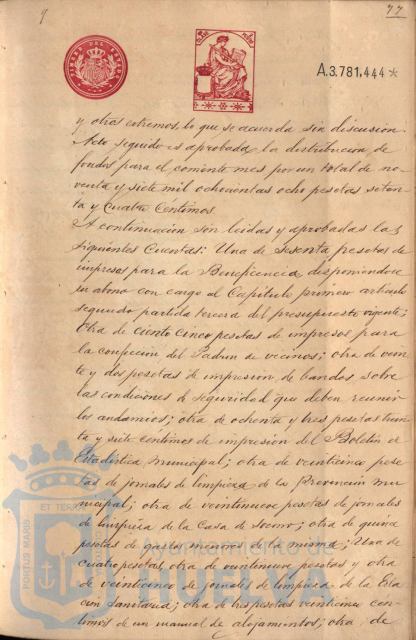 9
77
TIMBRE DEL ESTADO
A.3.781.444*
y otros extremos, lo que se acuerda sin discusion.
Acto seguido es aprobada la distribucion de
fondos para el corriente mes por un total de no-
venta y siete mil ochocientas ocho pesetas seten-
ta y cuatro Céntimos.
A continuación son leidas y aprobadas las
siguientes Cuentas: Una de sesenta pesetas de
impresos para la Beneficencia disponiéndose
su abono con cargo al Capítulo primero artículo
segundo partida tercera del presupuesto vigente;
Otra de ciento cinco pesetas de impresos para
la confeccion del Padron de vecinos; otra de vein-
te y dos pesetas de impresion de bandos sobre
las condiciones de seguridad que deben reunir
los andamios; otra de ochenta y tres pesetas trein-
ta y siete centimos de impresion del Boletin de
Estadística Municipal; otra de veinticinco pese-
tas de jornales de limpieza de la Prevencion mu-
nicipal; otra de veintinueve pesetas de jornales
de limpieza de la Casa de Socorro; otra de quince
pesetas de gastos menores de la misma; Una de
cuatro pesetas, otra de veintinueve pesetas y otra
de veinticinco de jornales de limpieza de la Esta-
cion Sanitaria; otra de tres pesetas veinticinco cen-
timos de un manual de alojamientos; otra de
PORTUS MARIS ET TERRAE
Ayuntamiento de
HUELVA